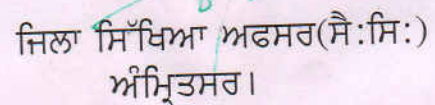 ਜਿਲਾ ਸਿੱਖਿਆ ਅਫਸਰ(ਸੈ:ਸਿ:)
ਅੰਮ੍ਰਿਤਸਰ।